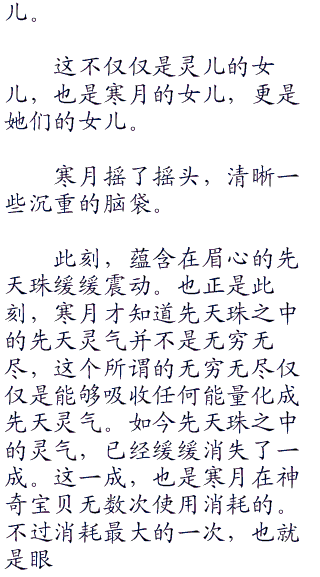 儿。
这不仅仅是灵儿的女
儿，也是寒月的女儿，更是
她们的女儿。
寒月摇了摇头，清晰一
些沉重的脑袋。
此刻，蕴含在眉心的先
天珠缓缓震动。也正是此
刻，寒月才知道先天珠之中
的先天灵气并不是无穷无
尽，这个所谓的无穷无尽仅
仅是能够吸收任何能量化成
先天灵气。如今先天珠之中
的灵气，已经缓缓消失了一
成。这一成，也是寒月在神
奇宝贝无数次使用消耗的。
不过消耗最大的一次，也就
是眼